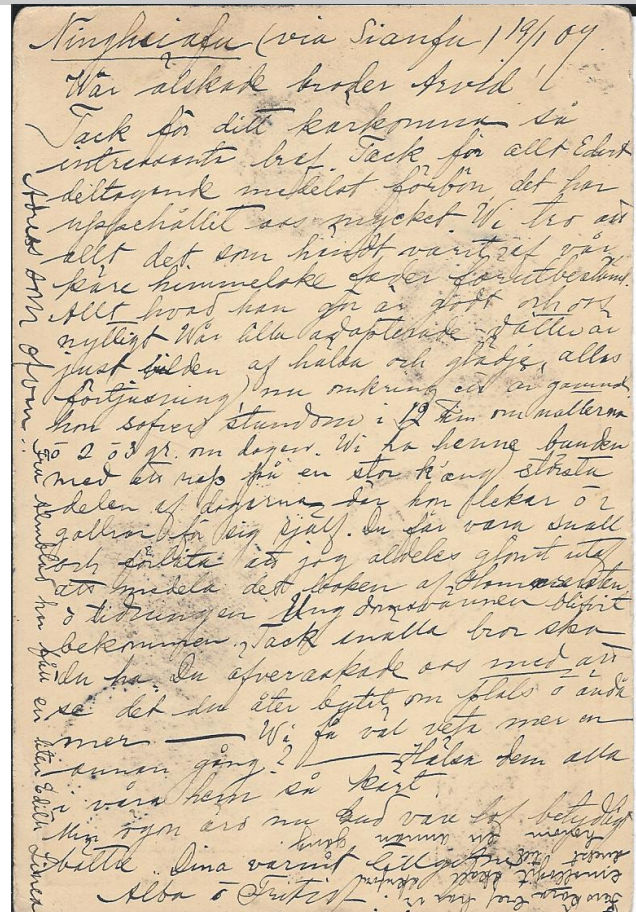 Ninghsiafu (via Sianfu) 19/1 09.
Wår älskade broder Arvid!
Tack för ditt kärkomna så
intressanta bref. Tack för allt Edert
deltagande medelst förbön, det har
uppehållit oss mycket. Wi tro att
allt det som händt, varit af vår
käre himmelske fader förutbestämt.
Allt hvad han gör är godt och oss
nyttigt. Wår lilla adopterade dotter är
just bilden af hälsa och glädje, allas
förtjusning, nu omkring ett år gammal.
hon sofver stundom i 12 tim om nätterna
o 2 o 3 gr. om dagen. Wi ha henne bunden
med ett rep på en stor k'ang största
delen af dagarna, där hon lekar o
för sig själf. Du får vara snäll
och förlåta att jag alldeles glömt utaf
att medela dett boken af
o tidningen Ungdomsvännen blifvit
bekommen. Tack snälla bror ska
du ha. Du öfverraskade oss med att
se det du åter bytt om plats o ändå
mer — Wi få väl veta mer en
annan gång? — Hälsa dem alla
i våra hem så kärt
Min ögon äro nu Gud vare lof betydligt
bättre. Dina varmt tillgifna
Alba o
Adress som ofvan.
Fru har fått en liten Edith Linnea